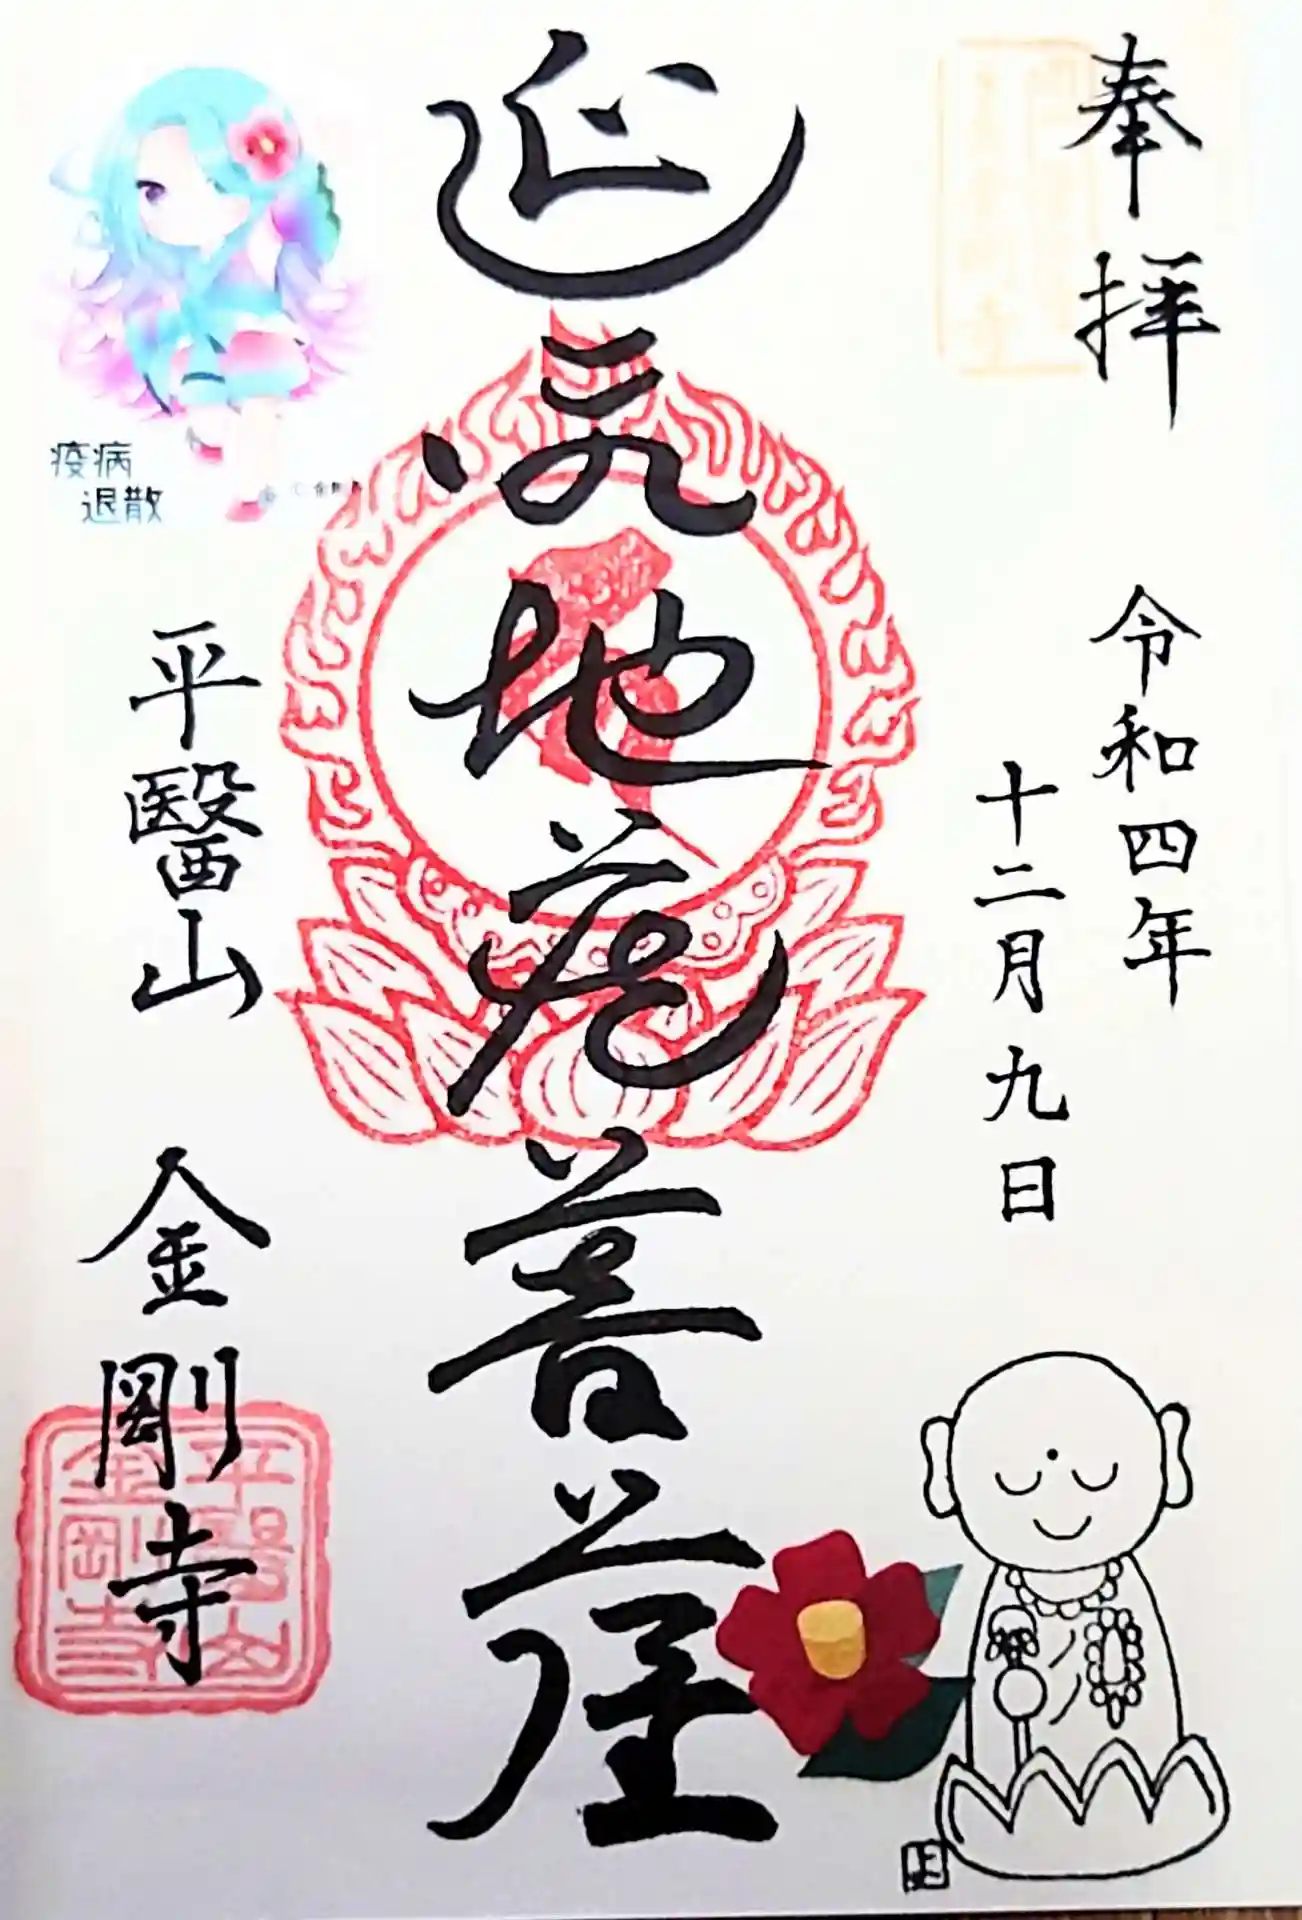 奉拝
令和四年
十二月九日
延命地蔵菩薩
疫病
退散
平醫山 金剛寺
平醫山
金剛寺